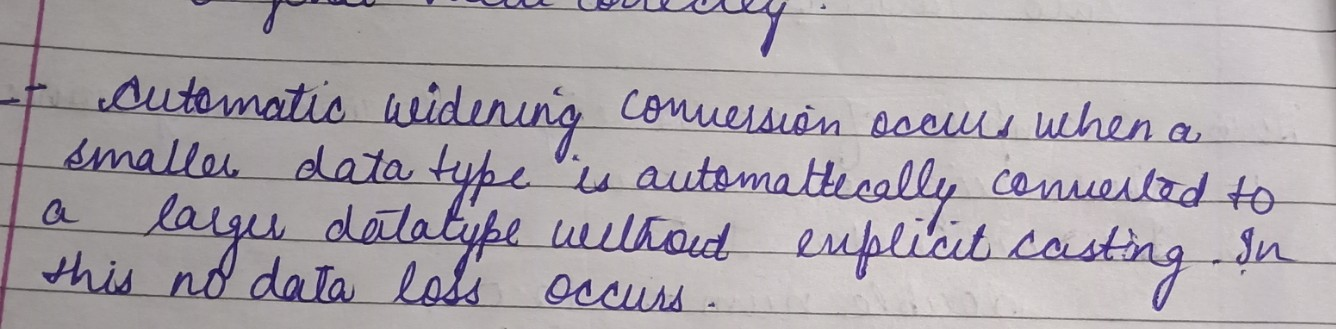 → Automatic widening conversion occurs when a
smaller data type is automattecally converted to
a larger datatype without explicit casting. In
this no data loss occurs.